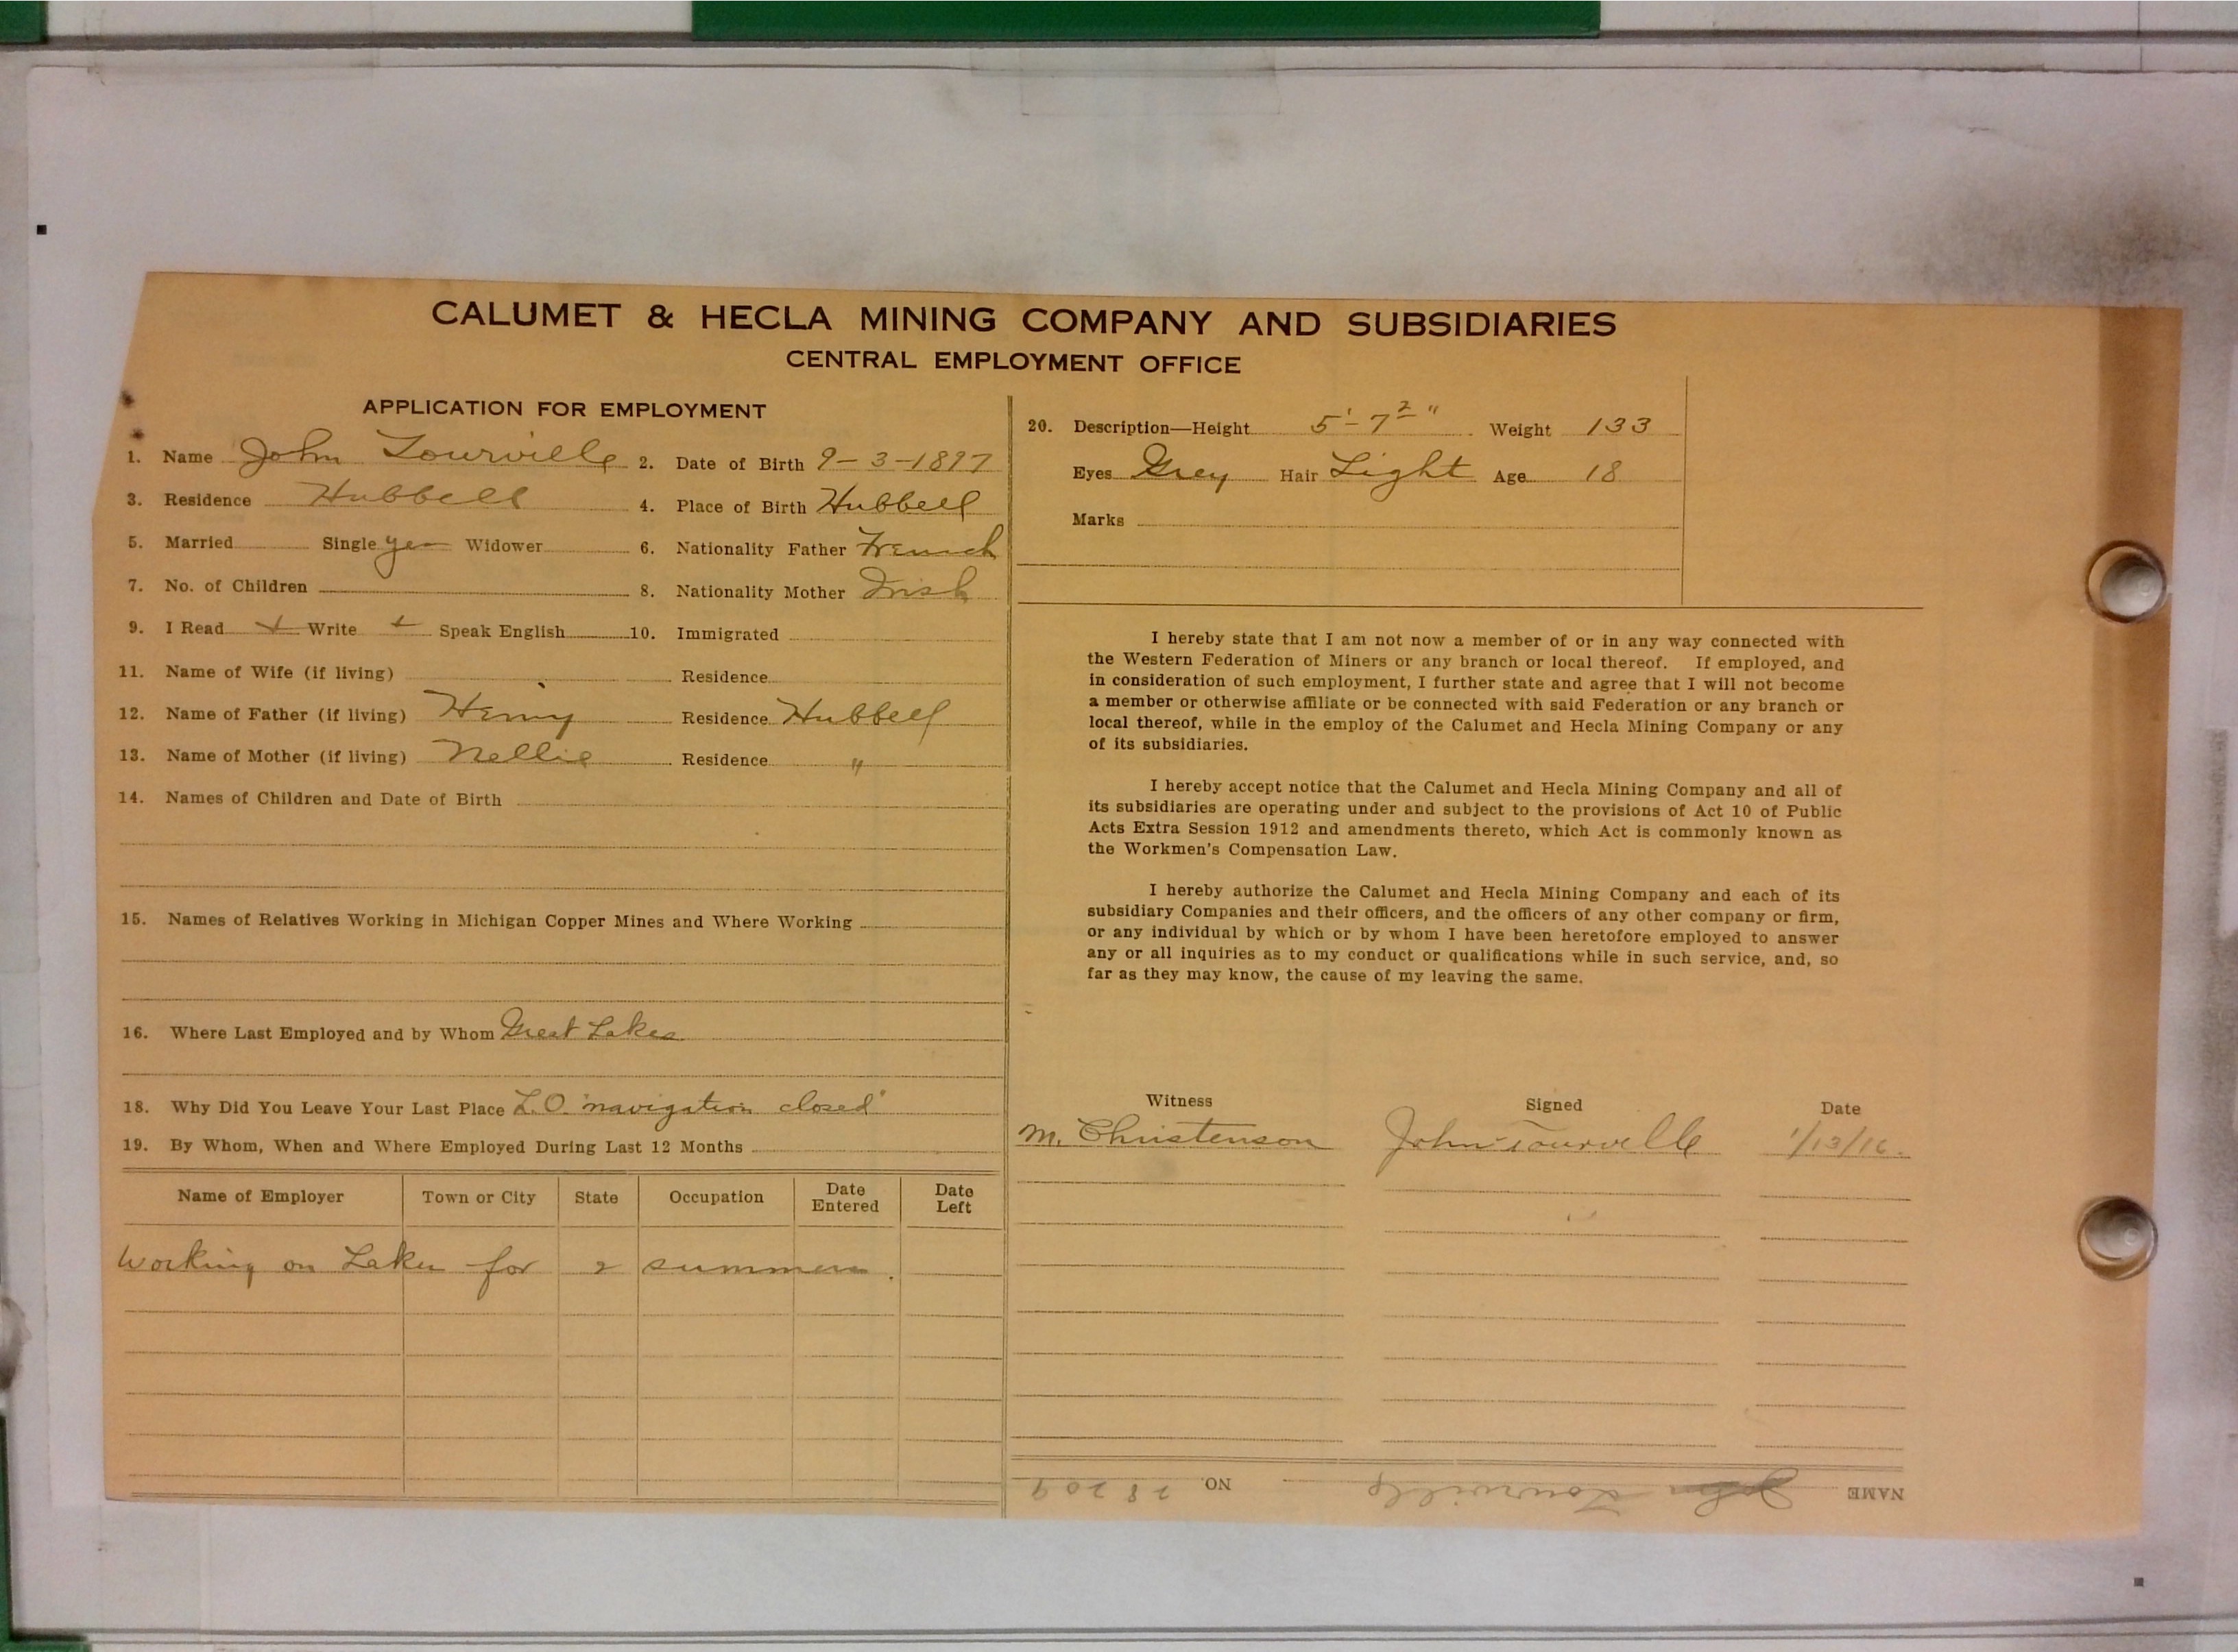 CALUMET & HECLA MINING COMPANY AND SUBSIDIARIES
CENTRAL EMPLOYMENT OFFICE
APPLICATION FOR EMPLOYMENT
1. Name John Tourville 2. Date of Birth 9-3-1897
3. Residence Hubbell 4. Place of Birth Hubbell
5. Married Single yes Widower 6. Nationality Father French
7. No. of Children 8. Nationality Mother Irish
9. I Read Write Speak English 10. Immigrated
11. Name of Wife (if living) Residence
12. Name of Father (if living) Henry Residence Hubbell
13. Name of Mother (if living) Nellie Residence "
14. Names of Children and Date of Birth
15. Names of Relatives Working in Michigan Copper Mines and Where Working
16. Where Last Employed and by Whom Great Lakes
18. Why Did You Leave Your Last Place L.O. "navigation closed"
19. By Whom, When and Where Employed During Last 12 Months
Name of Employer Town or City State Occupation Date Entered Date Left
Working on Lakes for 2 summers.
20. Description—Height 5'-7 2" Weight 133
Eyes Grey Hair Light Age 18
Marks
I hereby state that I am not now a member of or in any way connected with
the Western Federation of Miners or any branch or local thereof. If employed, and
in consideration of such employment, I further state and agree that I will not become
a member or otherwise affiliate or be connected with said Federation or any branch or
local thereof, while in the employ of the Calumet and Hecla Mining Company or any
of its subsidiaries.
I hereby accept notice that the Calumet and Hecla Mining Company and all of
its subsidiaries are operating under and subject to the provisions of Act 10 of Public
Acts Extra Session 1912 and amendments thereto, which Act is commonly known as
the Workmen's Compensation Law.
I hereby authorize the Calumet and Hecla Mining Company and each of its
subsidiary Companies and their officers, and the officers of any other company or firm,
or any individual by which or by whom I have been heretofore employed to answer
any or all inquiries as to my conduct or qualifications while in such service, and, so
far as they may know, the cause of my leaving the same.
Witness Signed Date
M. Christenson John Tourville 1/13/16.
NAME John Tourville NO. 28209